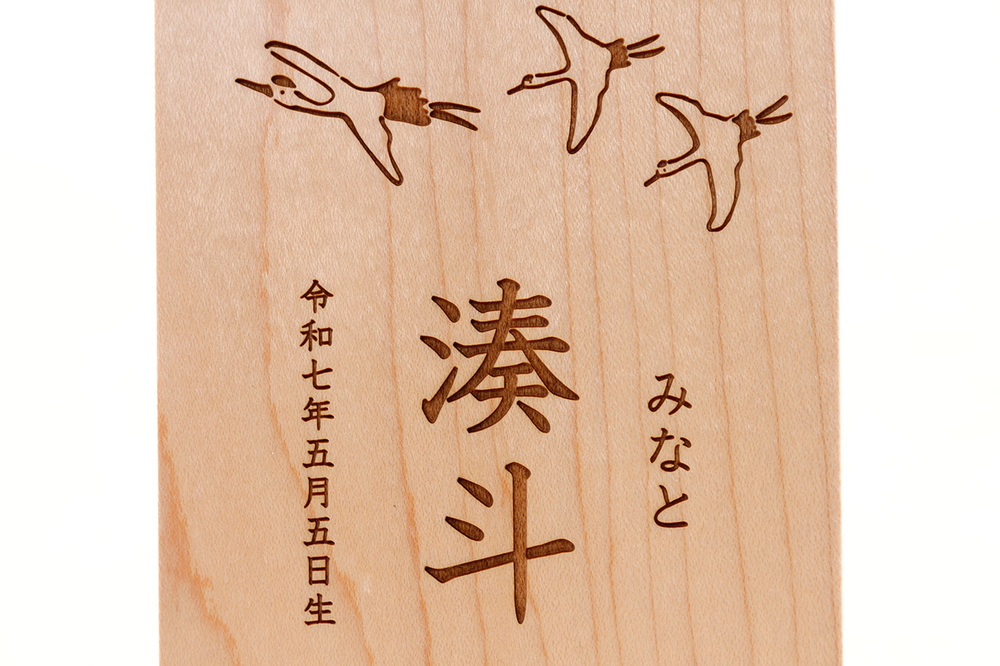 みなと
湊斗
令和七年五月五日生